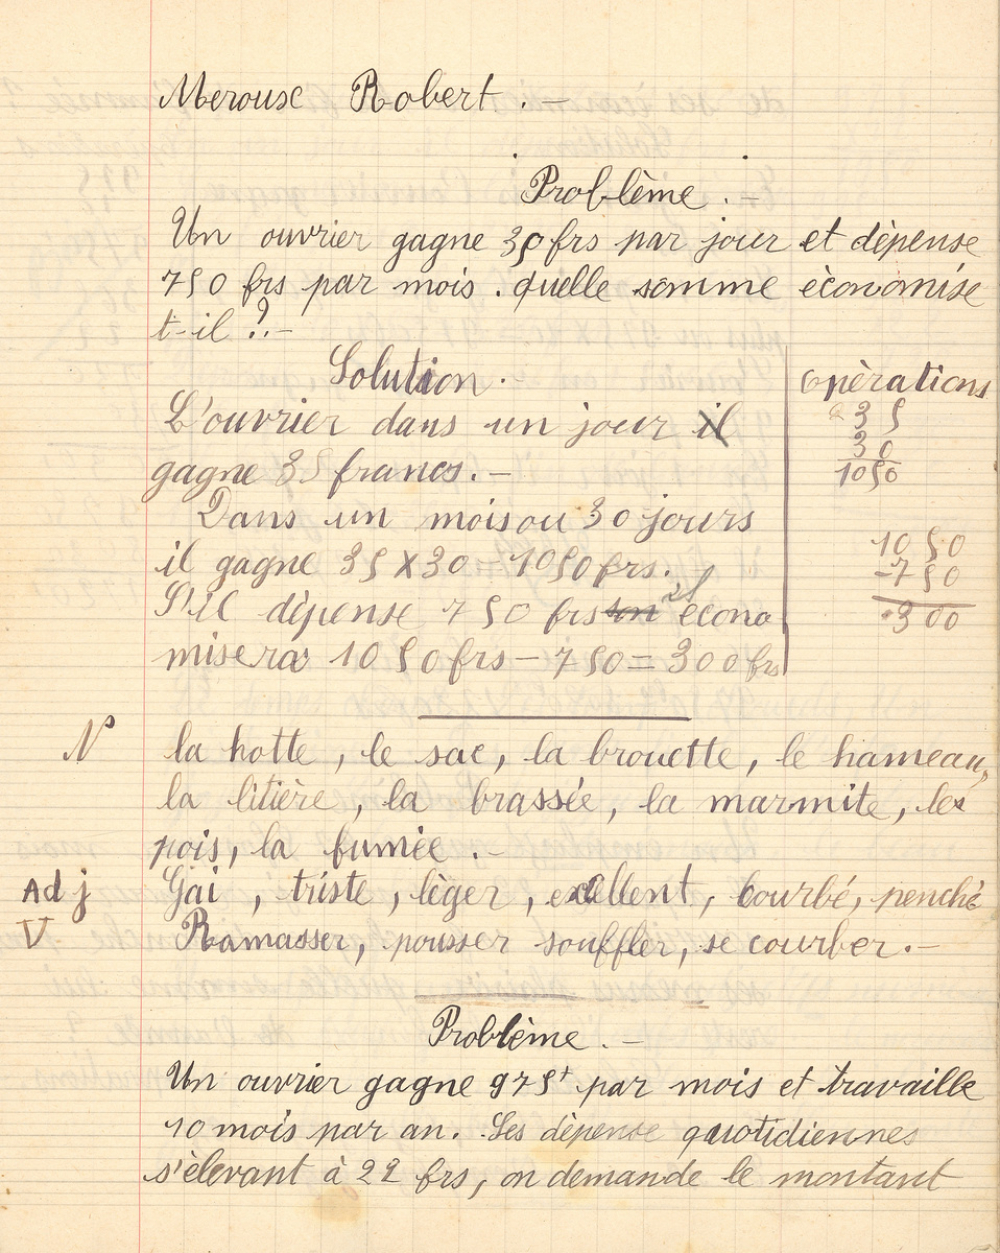 Merousc Robert . –
Problème . –
Un ouvrier gagne 35 frs par jour et dèpense
750 frs par mois . quelle somme èconomise
t-il ? . –
Solution .
L'ouvrier dans un jour il
gagne 35 francs. –
Dans un mois ou 30 jours
il gagne 35 X 30 = 1050 frs.
S'il dèpense 750 frs ilècono
misera 1050 frs – 750 = 300 frs
opèrations
35
30
1050
1050
-750
300
N la hotte, le sac, la brouette, le hameau,
la litière, la brassèe, la marmite, les
pois, la fumèe . –
Adj Gai, triste, lèger, excellent, courbé, penchè
V Ramasser, pousser souffler, se courber. –
Problème . –
Un ouvrier gagne 975f par mois et travaille
10 mois par an. Ses dèpense quotidiennes
s'èlevant à 22 frs, on demande le montant